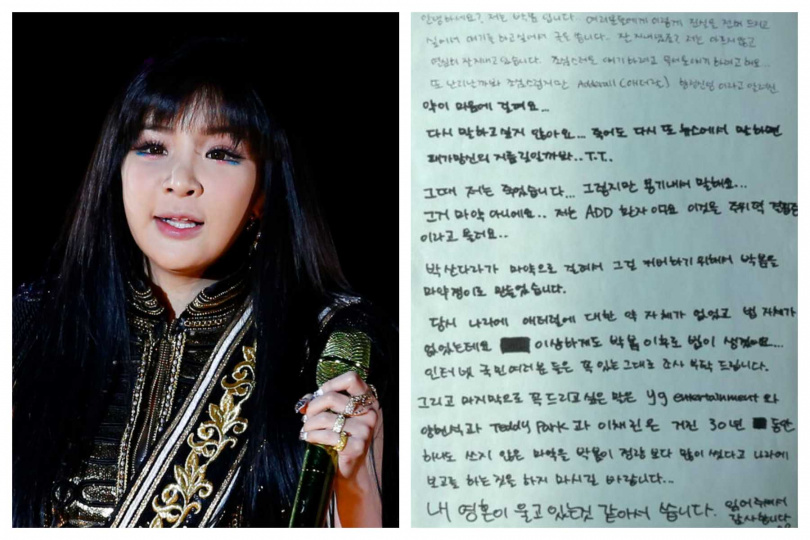 안녕하세요?, 저는 박봄 입니다. 여러분들에게 이렇게 진실을 전해 드리고
싶어서 얘기를 하고싶어서 글도 씁니다. 잘 지내셨죠? 저는 아프지않고
열심히 잘지내고 있습니다. 조심스러운 얘기 하려고 무거운얘기 하려고 해요...
또 난리난까봐 조심스럽지만 Adderall (애더럴)
약이 마음에 걸려요...
다시 말하고싶지 않아요... 죽어도 다시 또 뉴스에서 말하면
패가망신의 지름길일까봐..T.T.
그때 저는 죽었습니다... 그렇지만 용기내서 말해요...
그거 마약 아니에요.. 저는 ADD 환자 이고요 이것은 주의력 결핍증
이라고 불러요..
박산다라가 마약으로 걸려서 그걸 커버하기 위해서 박봄을
마약쟁이로 만들었습니다.
당시 나라에 애더럴에 대한 약 자체가 없었고 법 자체가
없었는데요 이상하게도 박봄 이후로 법이 생겼어요...
인터넷 국민 여러분 들은 꼭 있는 그대로 조사 부탁 드립니다.
그리고 마지막으로 꼭 드리고 싶은 말은 yg entertainment 와
양현석과 Teddy Park 과 이채린 은 거진 30년 동안
하나도 쓰지 않은 마약을 박봄이 정량 보다 많이 썼다고 나라에
보고 하는것을 하지 마시길 바랍니다...
내 영혼이 울고 있는것 같아서 씁니다. 읽어주셔서
감사합니다